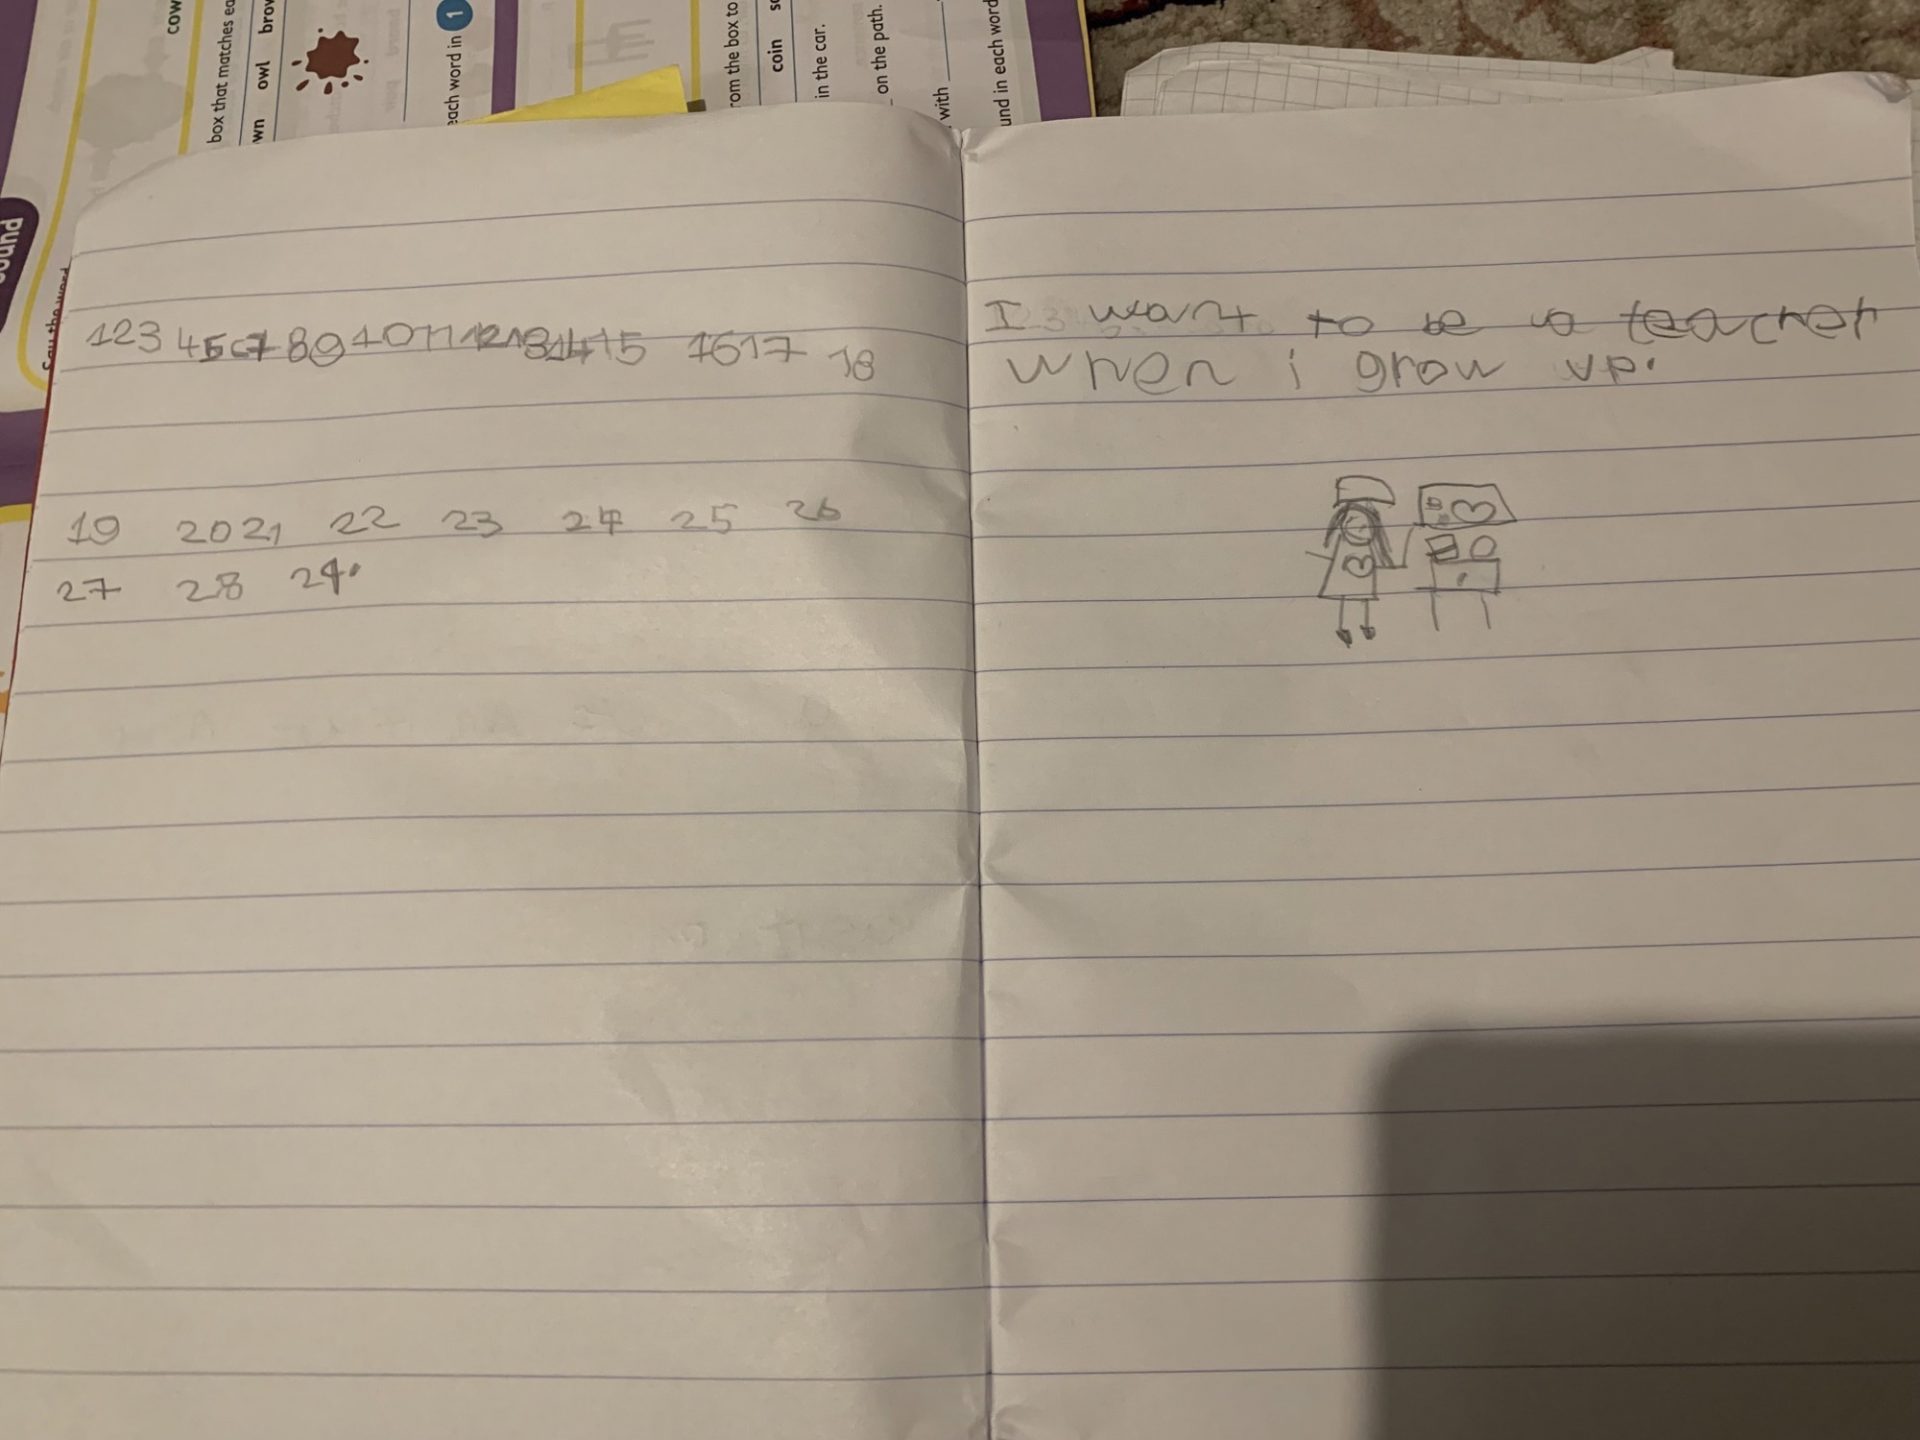 cow
box that matches
wn owl brow
each word in 1
rom the box to
coin
in the car.
on the path.
with
und in each word
ound
Say the word
123 4567 89 10 11 12 13 14 15 16 17 18
19 20 21 22 23 24 25 26
27 28 29.
I want to be a teacher
when i grow up.